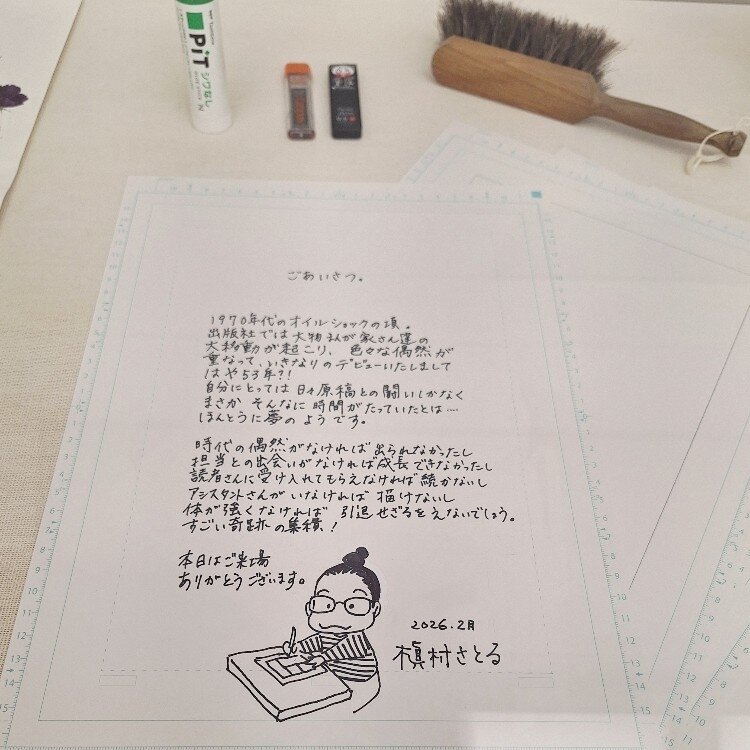 PiT
シワなし
ごあいさつ。
1970年代のオイルショックの頃。
出版社では大物まんが家さん達の
大移動が起こり、色々な偶然が
重なって、いきなりのデビューいたしまして
はや53年?!
自分にとっては日々原稿との闘いしかなく
まさかそんなに時間がたっていたとは…
ほんとうに夢のようです。
時代の偶然がなければ出られなかったし
担当との出会いがなければ成長できなかったし
読者さんに受け入れてもらえなければ続かないし
アシスタントさんがいなければ描けないし
体が強くなければ引退せざるをえないでしょう。
すごい奇跡の集積!
本日はご来場
ありがとうございます。
2026.2月
槇村さとる